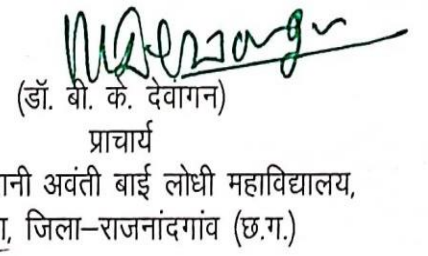 (डॉ. बी. के. देवागन)
प्राचार्य
अवंती बाई लोधी महाविद्यालय,
जिला–राजनांदगांव (छ.ग.)